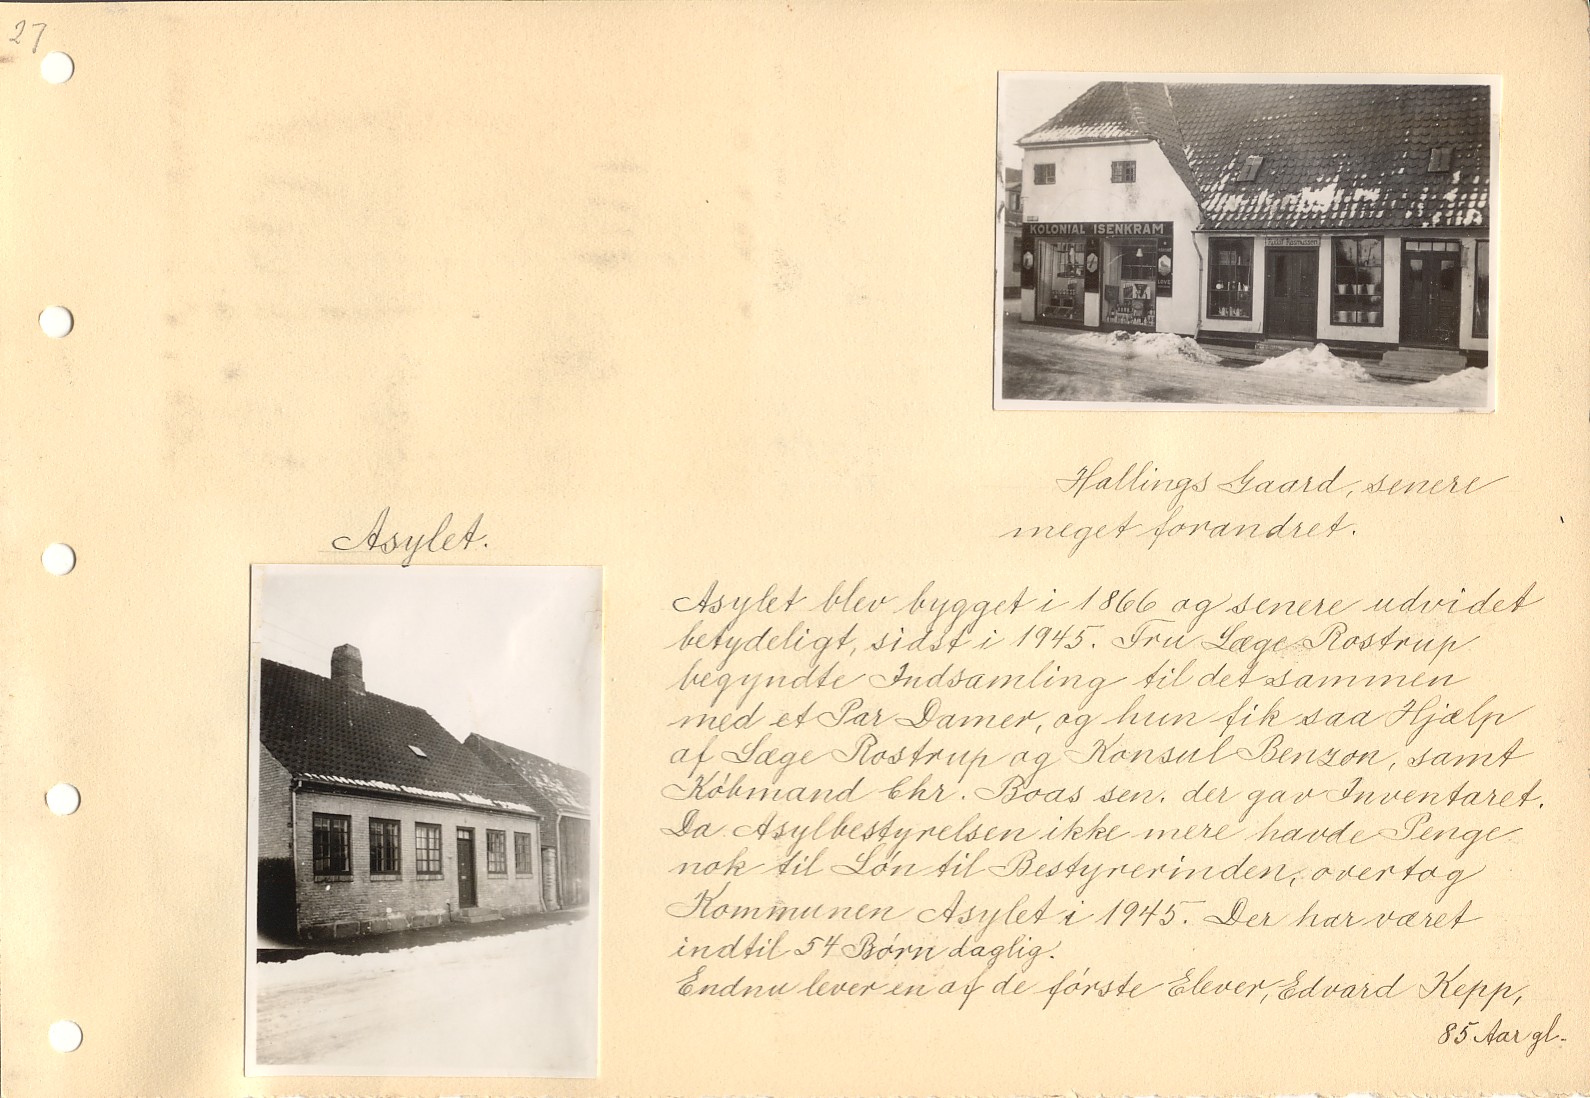 27
KOLONIAL ISENKRAM
Rasmussen
Hallings Gaard, senere
meget forandret.
Asylet.
Asylet blev bygget i 1866 og senere udvidet
betydeligt, sidst i 1945. Fru Læge Rostrup
begyndte Indsamling til det sammen
med et Par Damer, og hun fik saa Hjælp
af Læge Rostrup og Konsul Benzon, samt
Købmand Chr. Boas sen. der gav Inventaret.
Da Asylbestyrelsen ikke mere havde Penge
nok til Løn til Bestyrerinden, overtog
Kommunen Asylet i 1945. Der har været
indtil 54 Børn daglig.
Endnu lever en af de første Elever, Edvard Kepp,
85 Aar gl.